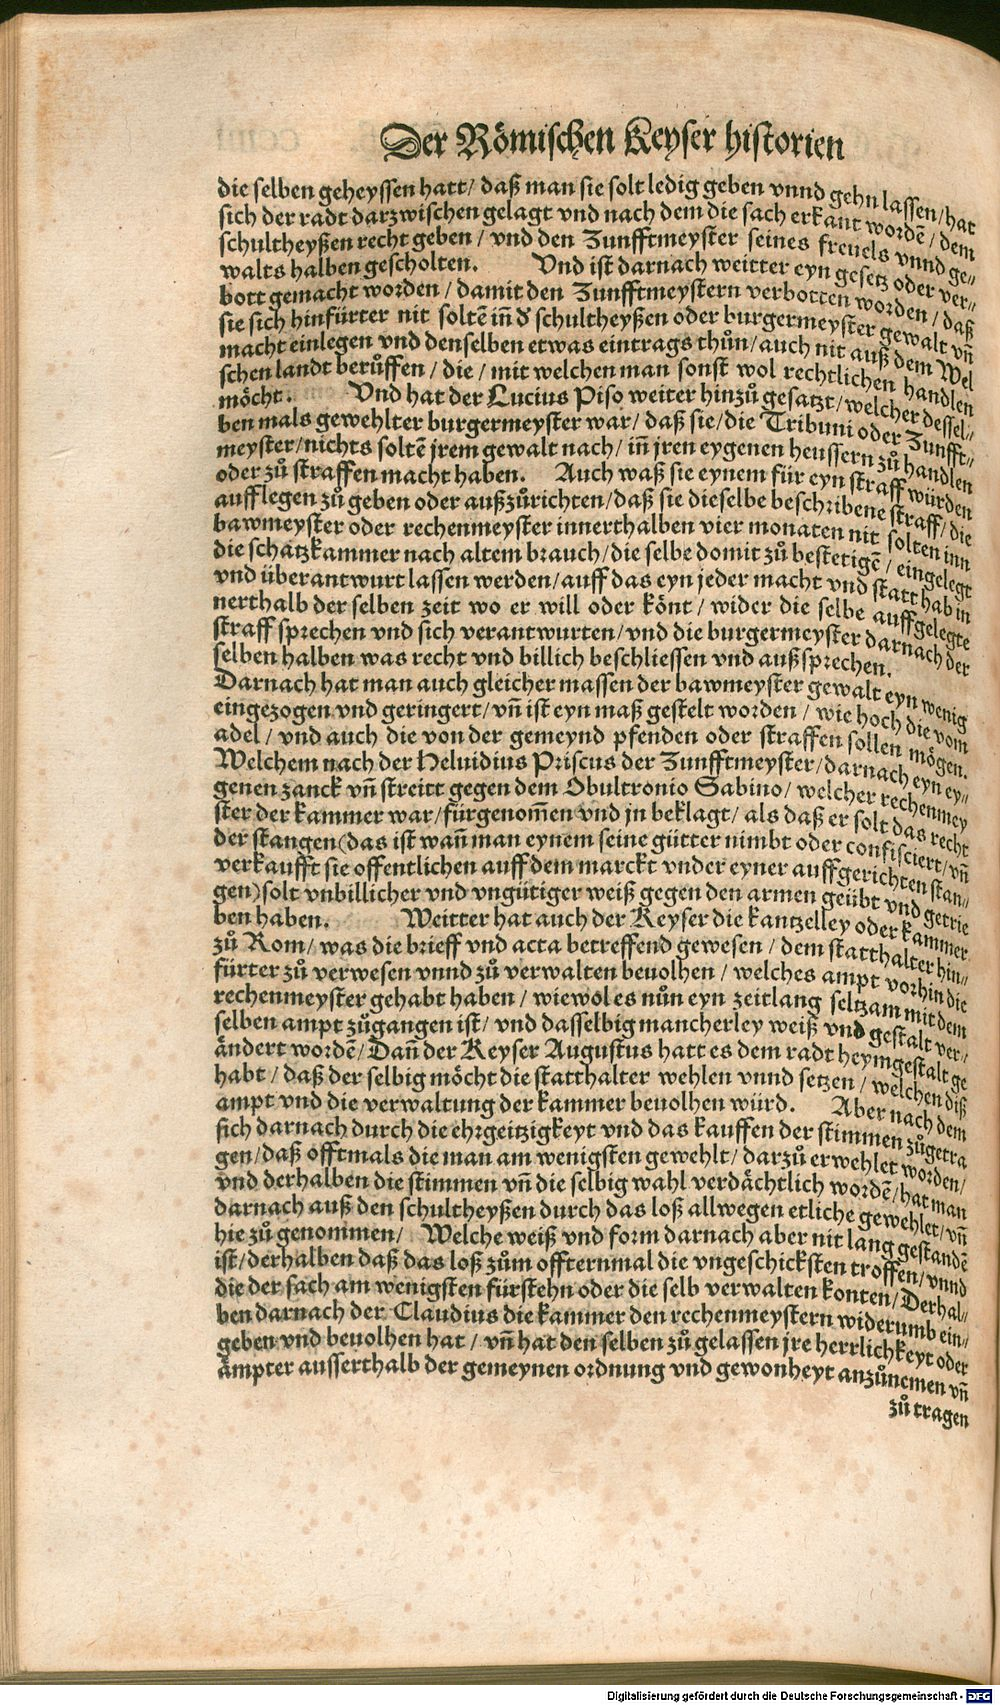 Der Römischen Keyser historien
die selben geheyssen hatt/ daß man sie solt ledig geben vnnd gehn lassen/ hat
sich der radt darzwischen gelagt vnd nach dem die sach erkant wordẽ/ dem
schultheyßen recht geben/ vnd den Zunfftmeyster seines freuels vnnd ge⸗
walts halben gescholten. Vnd ist darnach weitter eyn gesetz oder ver⸗
bott gemacht worden/ damit den Zunfftmeystern verbotten worden/ daß
sie sich hinfürter nit soltẽ iñ d' schultheyßen oder burgermeyster gewalt vñ
macht einlegen vnd denselben etwas eintrags thůn/ auch nit auß dem Wel
schen landt berůffen/ die/ mit welchen man sonst wol rechtlichen handlen
möcht. Vnd hat der Lucius Piso weiter hinzů gesatzt/ welcher dessel⸗
ben mals gewehlter burgermeyster war/ daß sie/ die Tribuni oder Zunfft⸗
meyster/ nichts soltẽ jrem gewalt nach/ iñ jren eygenen heussern zů handlen
oder zů straffen macht haben. Auch waß sie eynem für eyn straff würden
aufflegen zů geben oder außzůrichten/ daß sie dieselbe beschribene straff/ die
bawmeyster oder rechenmeyster innerthalben vier monaten nit solten inn
die schatzkammer nach altem brauch/ die selbe domit zů bestetigẽ/ eingelegt
vnd überantwurt lassen werden/ auff das eyn jeder macht vnd statt hab in
nerthalb der selben zeit wo er will oder könt/ wider die selbe auffgelegte
straff sprechen vnd sich verantwurten/ vnd die burgermeyster darnach der
selben halben was recht vnd billich beschliessen vnd außsprechen.
Darnach hat man auch gleicher massen der bawmeyster gewalt eyn wenig
eingezogen vnd geringert/ vñ ist eyn maß gestelt worden/ wie hoch die vom
adel/ vnd auch die von der gemeynd pfenden oder straffen sollen mögen.
Welchem nach der Heluidius Priscus der Zunfftmeyster/ darnach eyn ey⸗
genen zanck vñ streitt gegen dem Obultronio Sabino/ welcher rechenmey
ster der kammer war/ fürgenom̃en vnd jn beklagt/ als daß er solt das recht
der stangen (das ist wañ man eynem seine gütter nimbt oder confisciert/ vñ
verkaufft sie offentlichen auff dem marckt vnder eyner auffgerichten stan⸗
gen) solt vnbillicher vnd vngütiger weiß gegen den armen geübt vnd getrie
ben haben. Weitter hat auch der Keyser die kantzelley oder kammer
zů Rom/ was die brieff vnd acta betreffend gewesen/ dem statthalter hin⸗
fürter zů verwesen vnnd zů verwalten beuolhen/ welches ampt vorhin die
rechenmeyster gehabt haben/ wiewol es nůn eyn zeitlang seltzam mit dem
selben ampt zůgangen ist/ vnd dasselbig mancherley weiß vnd gestalt ver⸗
ändert wordẽ/ Dañ der Keyser Augustus hatt es dem radt heymgestalt ge
habt/ daß der selbig möcht die statthalter wehlen vnnd setzen/ welchen diß
ampt vnd die verwaltung der kammer beuolhen würd. Aber nach dem
sich darnach durch die ehrgeitzigkeyt vnd das kauffen der stimmen zůgetra
gen/ daß offtmals die man am wenigsten gewehlt/ darzů erwehlet worden/
vnd derhalben die stimmen vñ die selbig wahl verdächtlich wordẽ/ hat man
darnach auß den schultheyßen durch das loß allwegen etliche gewehlet/ vñ
hie zů genommen/ Welche weiß vnd form darnach aber nit lang gestandẽ
ist/ derhalben daß das loß zům offternmal die vngeschicksten troffen/ vnnd
die der sach am wenigsten fürstehn oder die selb verwalten konten/ Derhal⸗
ben darnach der Claudius die kammer den rechenmeystern widerumb ein⸗
geben vnd beuolhen hat/ vñ hat den selben zů gelassen jre herrlichkeyt oder
ämpter ausserthalb der gemeynen ordnung vnd gewonheyt anzůnemen vñ
zů tragen
Digitalisierung gefördert durch die Deutsche Forschungsgemeinschaft - DFG